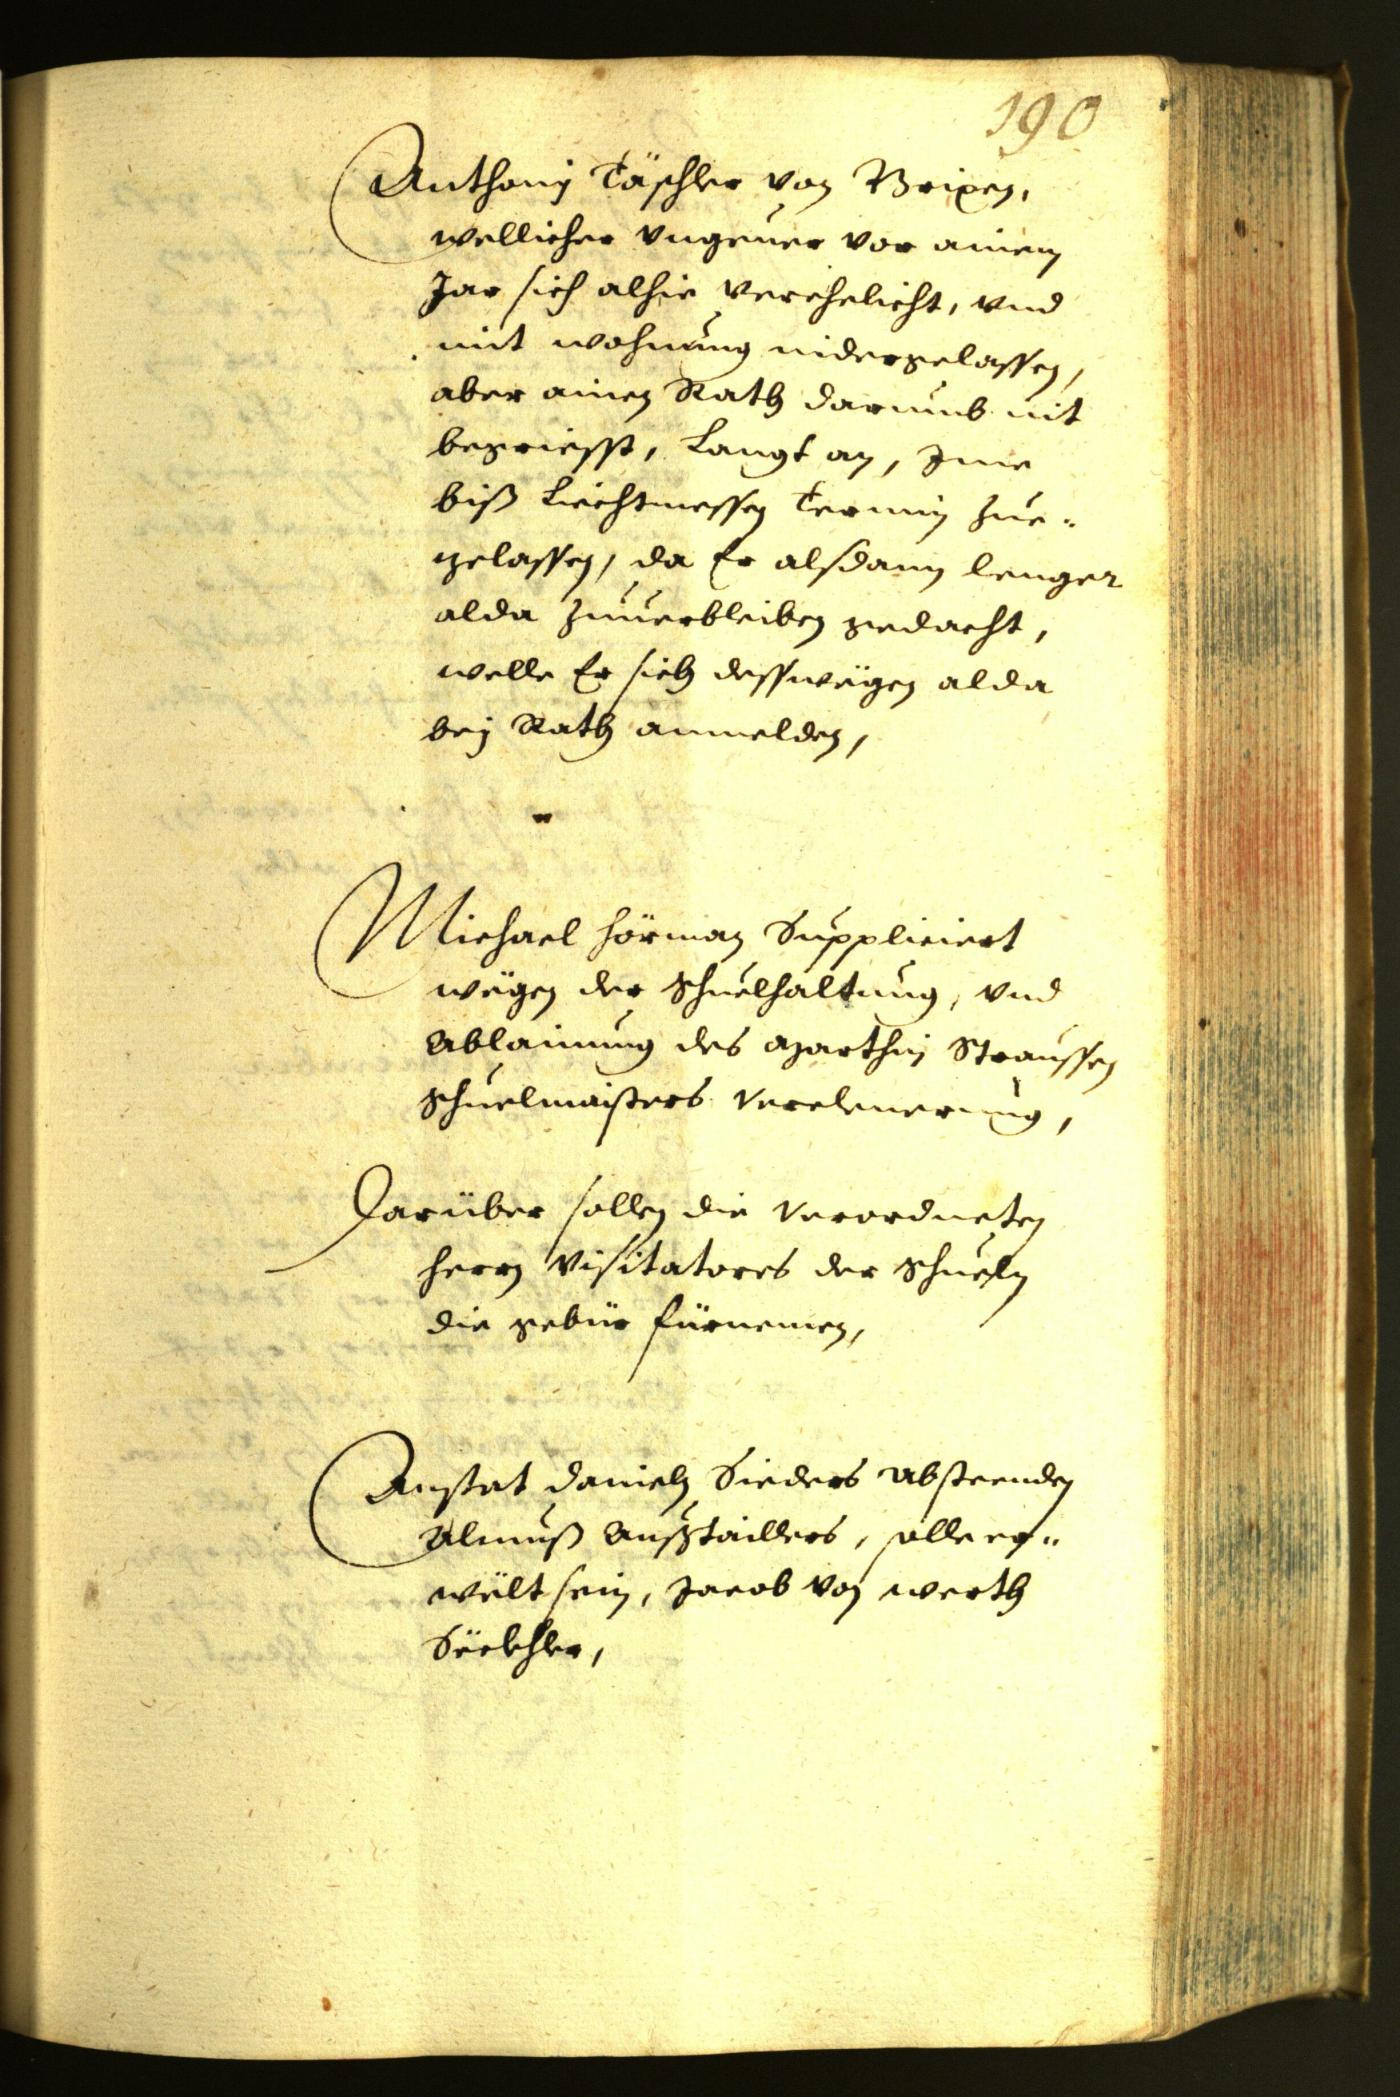 190
Anthonj Täschler von Brixen,
wellicher vngeuer vor ainem
Jar sich alhie verehelicht, vnd
mit wohnung nidergelassen,
aber ainen Rath darumb nit
begriesst, Langt an, Jme
biß Liechtmessen Termin zue-
gelassen, da Er alsdann lenger
alda zuuerbleiben gedacht,
welle Er sich desswegen alda
bej Rath anmelden,
Michael Hörman Suppliciert
wegen der Schuelhaltung, vnd
Ablainung des Marthin Straussen
Schuelmaisters
Darüber sollen die verordneten
Herrn Visitatores der Schueln
die gebür fürnemen,
Anstat Danieln Sieders absteenden
Almueß Außtaillers, solle er-
wölt sein, Jacob von Werth
Seckhler,